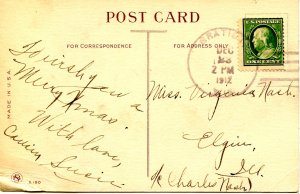 POST CARD
FOR CORRESPONDENCE
FOR ADDRESS ONLY
I wish you a
Merry Xmas.
With love,
Cousin Susie
MADE IN U.S.A.
DEC
2 PM
1912
U.S. POSTAGE
ONE CENT
Miss. Virginia Nash.
Elgin,
Ill.
c/o Charles Nash